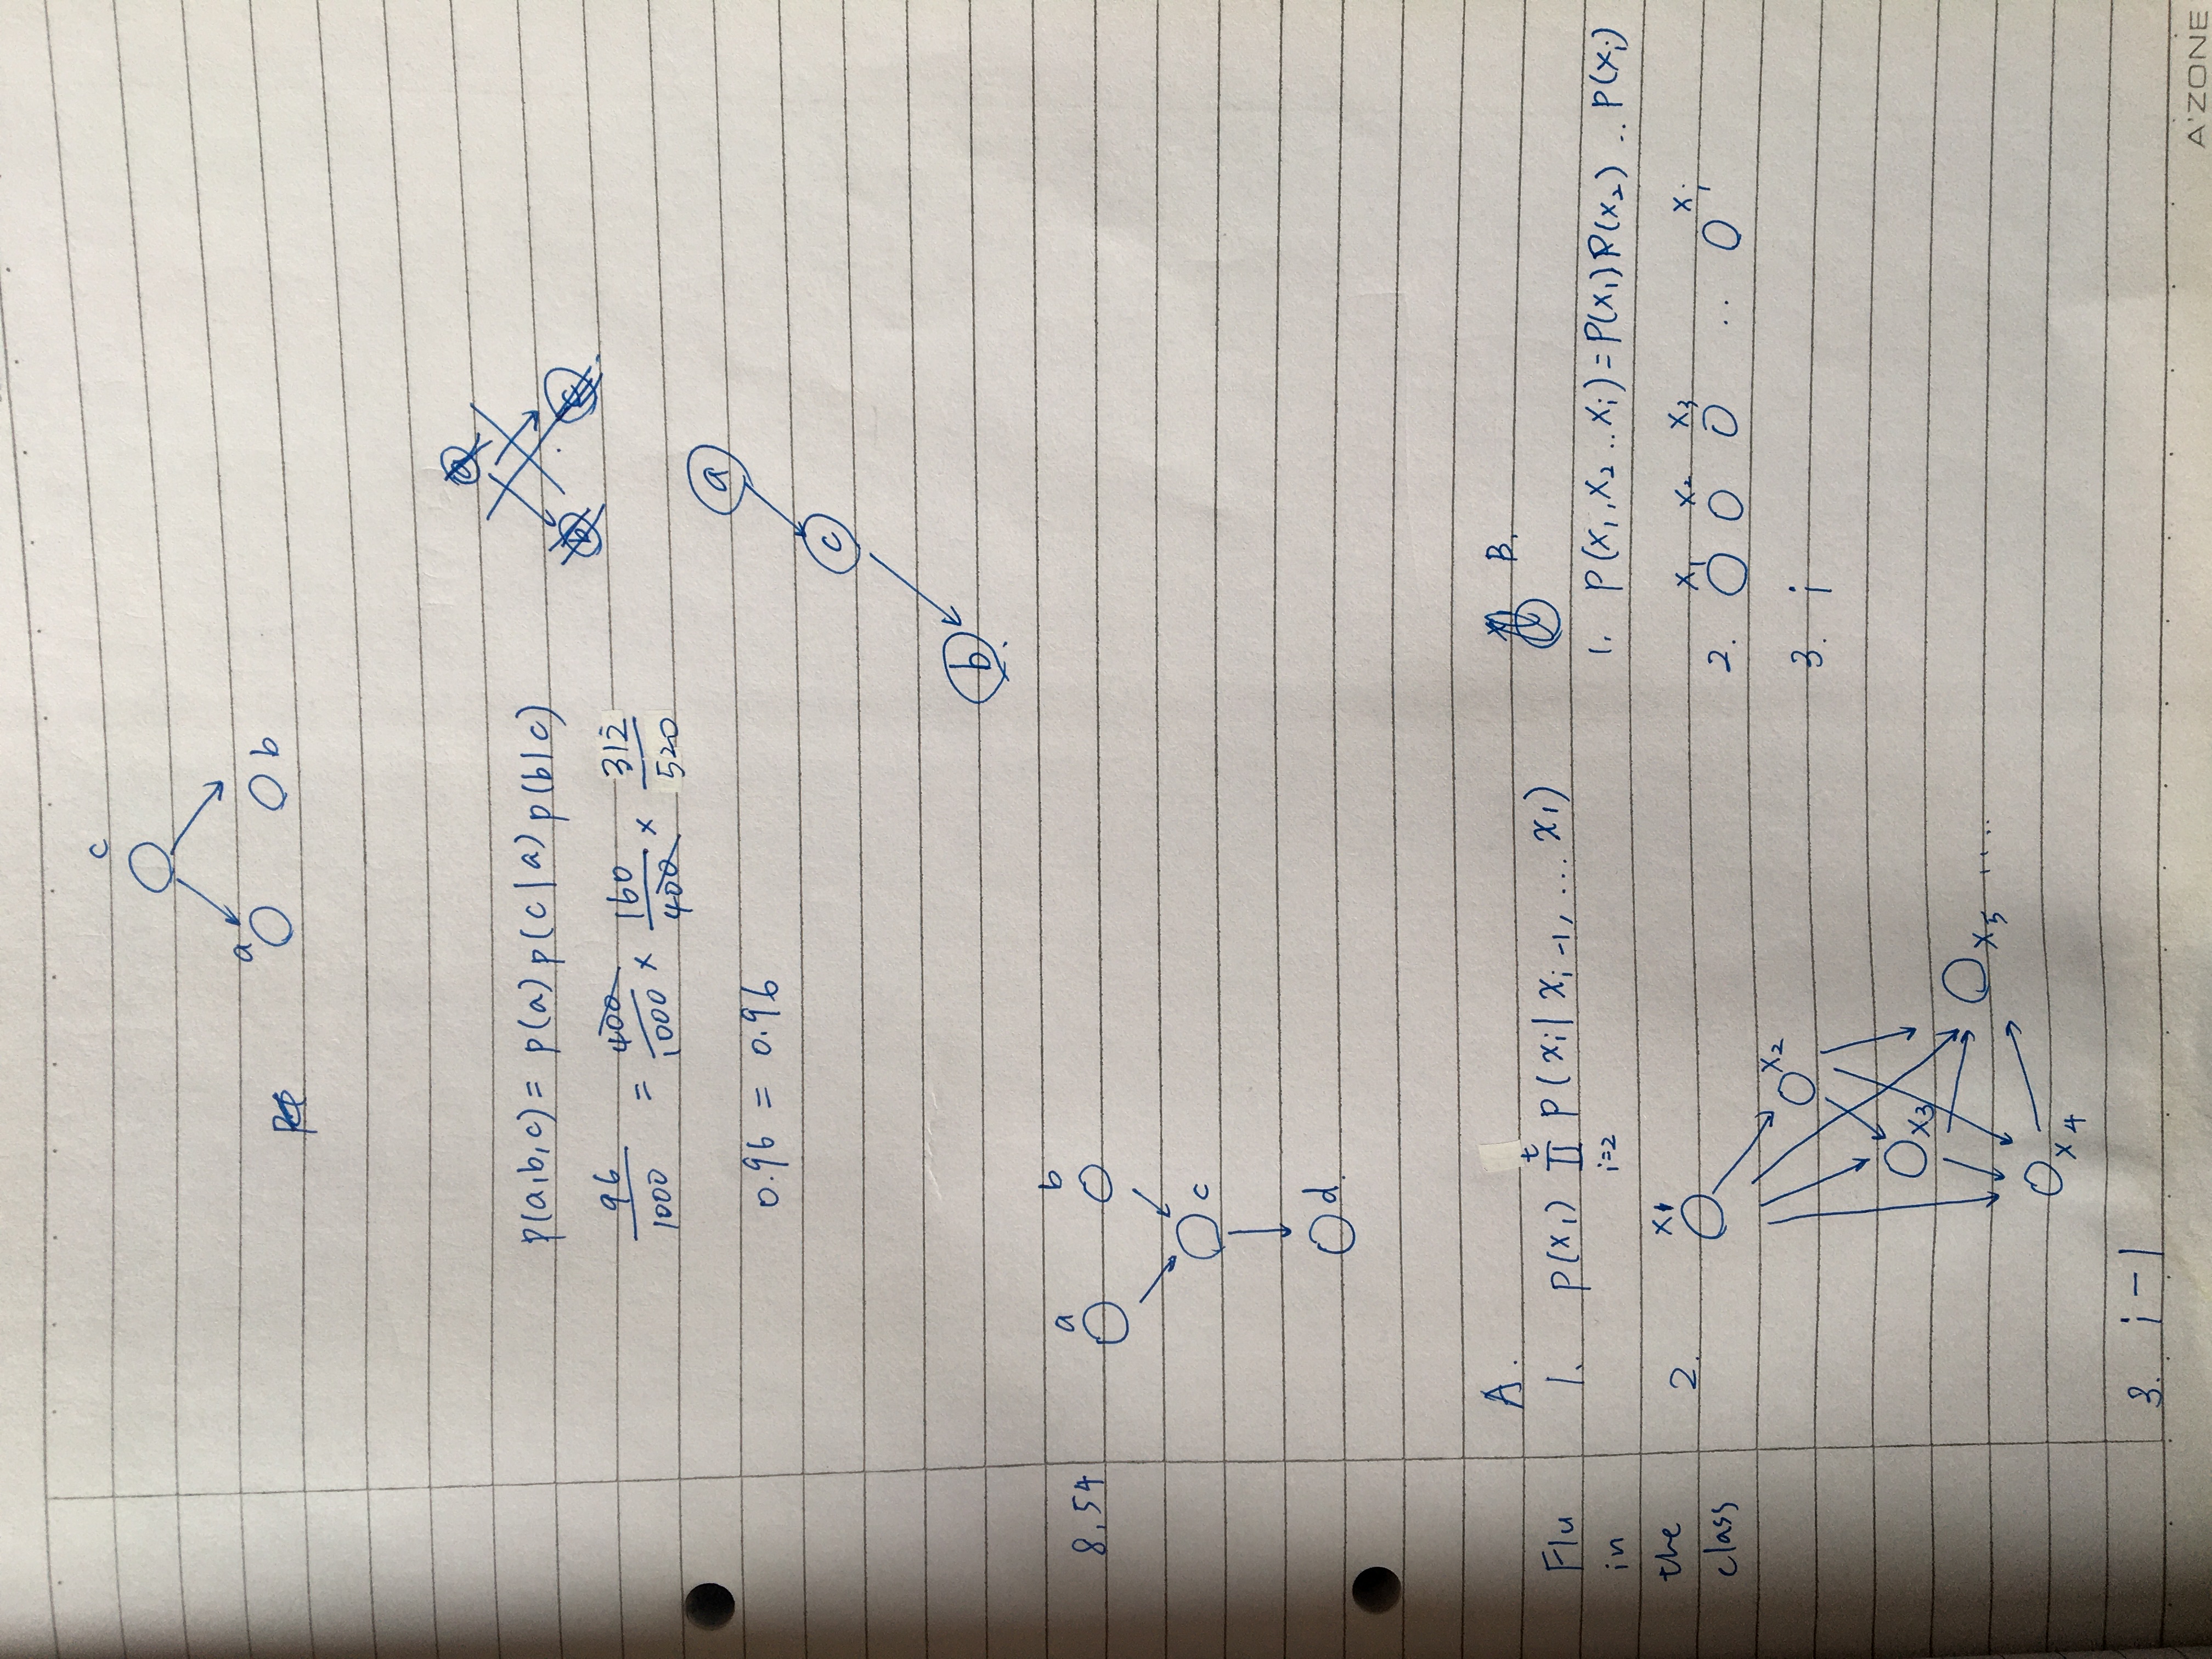 c
a
b
p(a,b,c) = p(a) p(c|a) p(b|c)
96/1000 = 400/1000 × 160/400 × 312/520
0.96 = 0.96
a
c
b
8.54
a b
c
d.
A.
B.
Flu in the class
1. p(x₁) ∏ᵗᵢ₌₂ p(xᵢ| xᵢ₋₁, ... x₁)
1. P(x₁,x₂ .. xᵢ) = P(x₁) P(x₂) .. P(xᵢ)
2. x₁
x₂
x₃
x₄
x₅ .....
2. x₁ x₂ x₃ .. xᵢ
3. i
3. i-1
A'ZONE